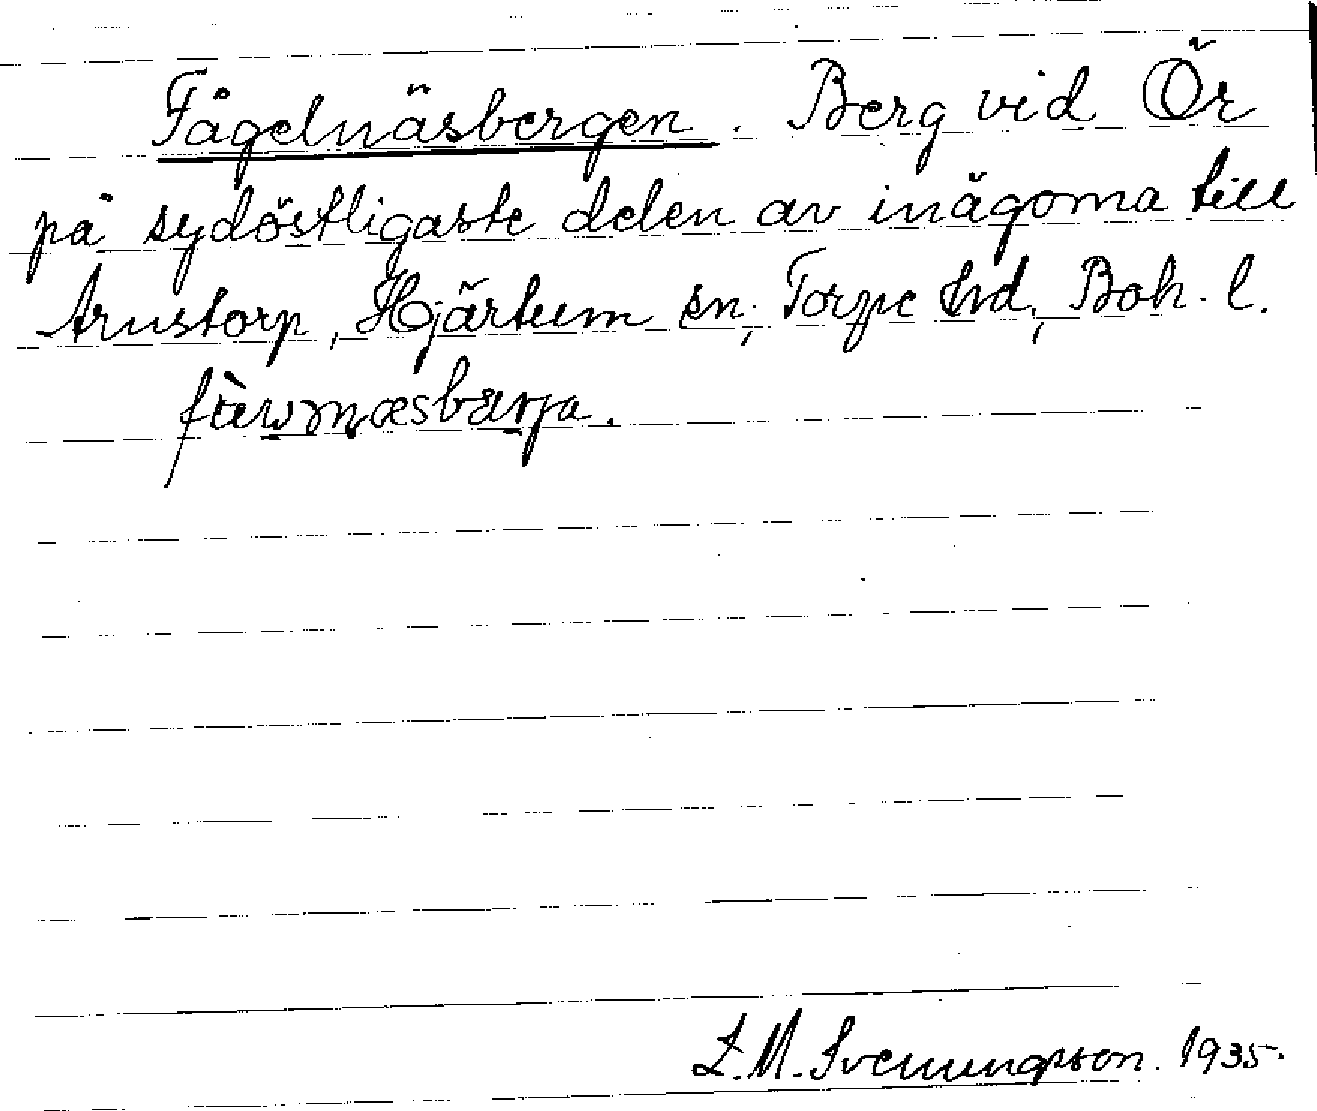 Fågelnäsbergen. Berg vid Ör
på sydöstligaste delen av inägorna till
Arnstorp, Hjärtum sn; Torpe hd, Boh. l.
L.M. Svenungsson. 1935.